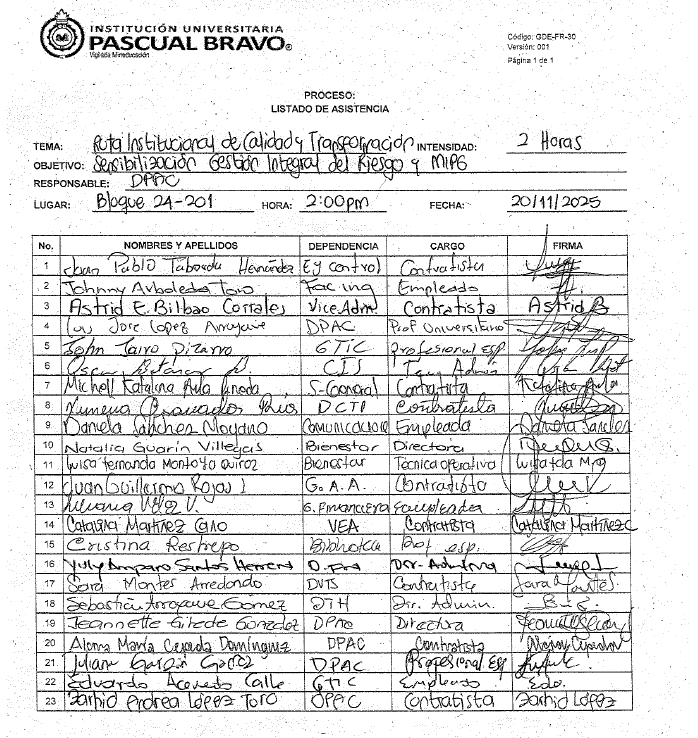 INSTITUCIÓN UNIVERSITARIA
PASCUAL BRAVO®
Vigilada Mineducación
Código: GDE-FR-30
Versión: 001
Página 1 de 1
PROCESO:
LISTADO DE ASISTENCIA
TEMA: Ruta Institucional de Calidad y Transformación INTENSIDAD: 2 Horas
OBJETIVO: Sensibilización Gestión Integral del Riesgo y MIPG
RESPONSABLE: DPAC
LUGAR: Bloque 24-201 HORA: 2:00pm FECHA: 20/11/2025
No. NOMBRES Y APELLIDOS DEPENDENCIA CARGO FIRMA
1 Juan Pablo Taborda Hernández Ey control Contratista
2 Johnny Arboleda Toro Fac ing Empleado
3 Astrid E. Bilbao Corrales Vice.Adm Contratista Astrid B
4 Jose Lopez DPAC Prof Universitario
5 John Jairo Pizarro GTIC Profesional Esp
6 Oscar
7 Michell Katalina Avila Pineda S-General Contratista Katalina Avila
8 Ximena Granados DCTP Contratista
9 Daniela Sánchez Moyano Comunicacion Empleada Daniela Sanchez
10 Natalia Guarín Villegas Bienestar Directora
11 Luisa Fernanda Montoya Quiroz Bienestar Técnica operativo
12 Juan Guillermo Rojas G.A.A. Contratista
13 G. Financiera Empleada
14 Catalina Martínez Cano VEA Contratista Catalina Martinez C
15 Cristina Restrepo Biblioteca Prof. esp.
16 Yuly Amparo Santos Herrera
17 Sara Montes Arredondo Contratista Sara Montes
18 Sebastián Arroyave Gómez DTH Dir. Admin.
19 Jeannette Giraldo González DPAC Directora
20 María Domínguez DPAC Contratista
21 Juliana Garcín DPAC Profesional Esp
22 Eduardo Acevedo Calle GTIC Empleado Edo.
23 Zarhid Andrea López Toro OPPC Contratista Zarhid López